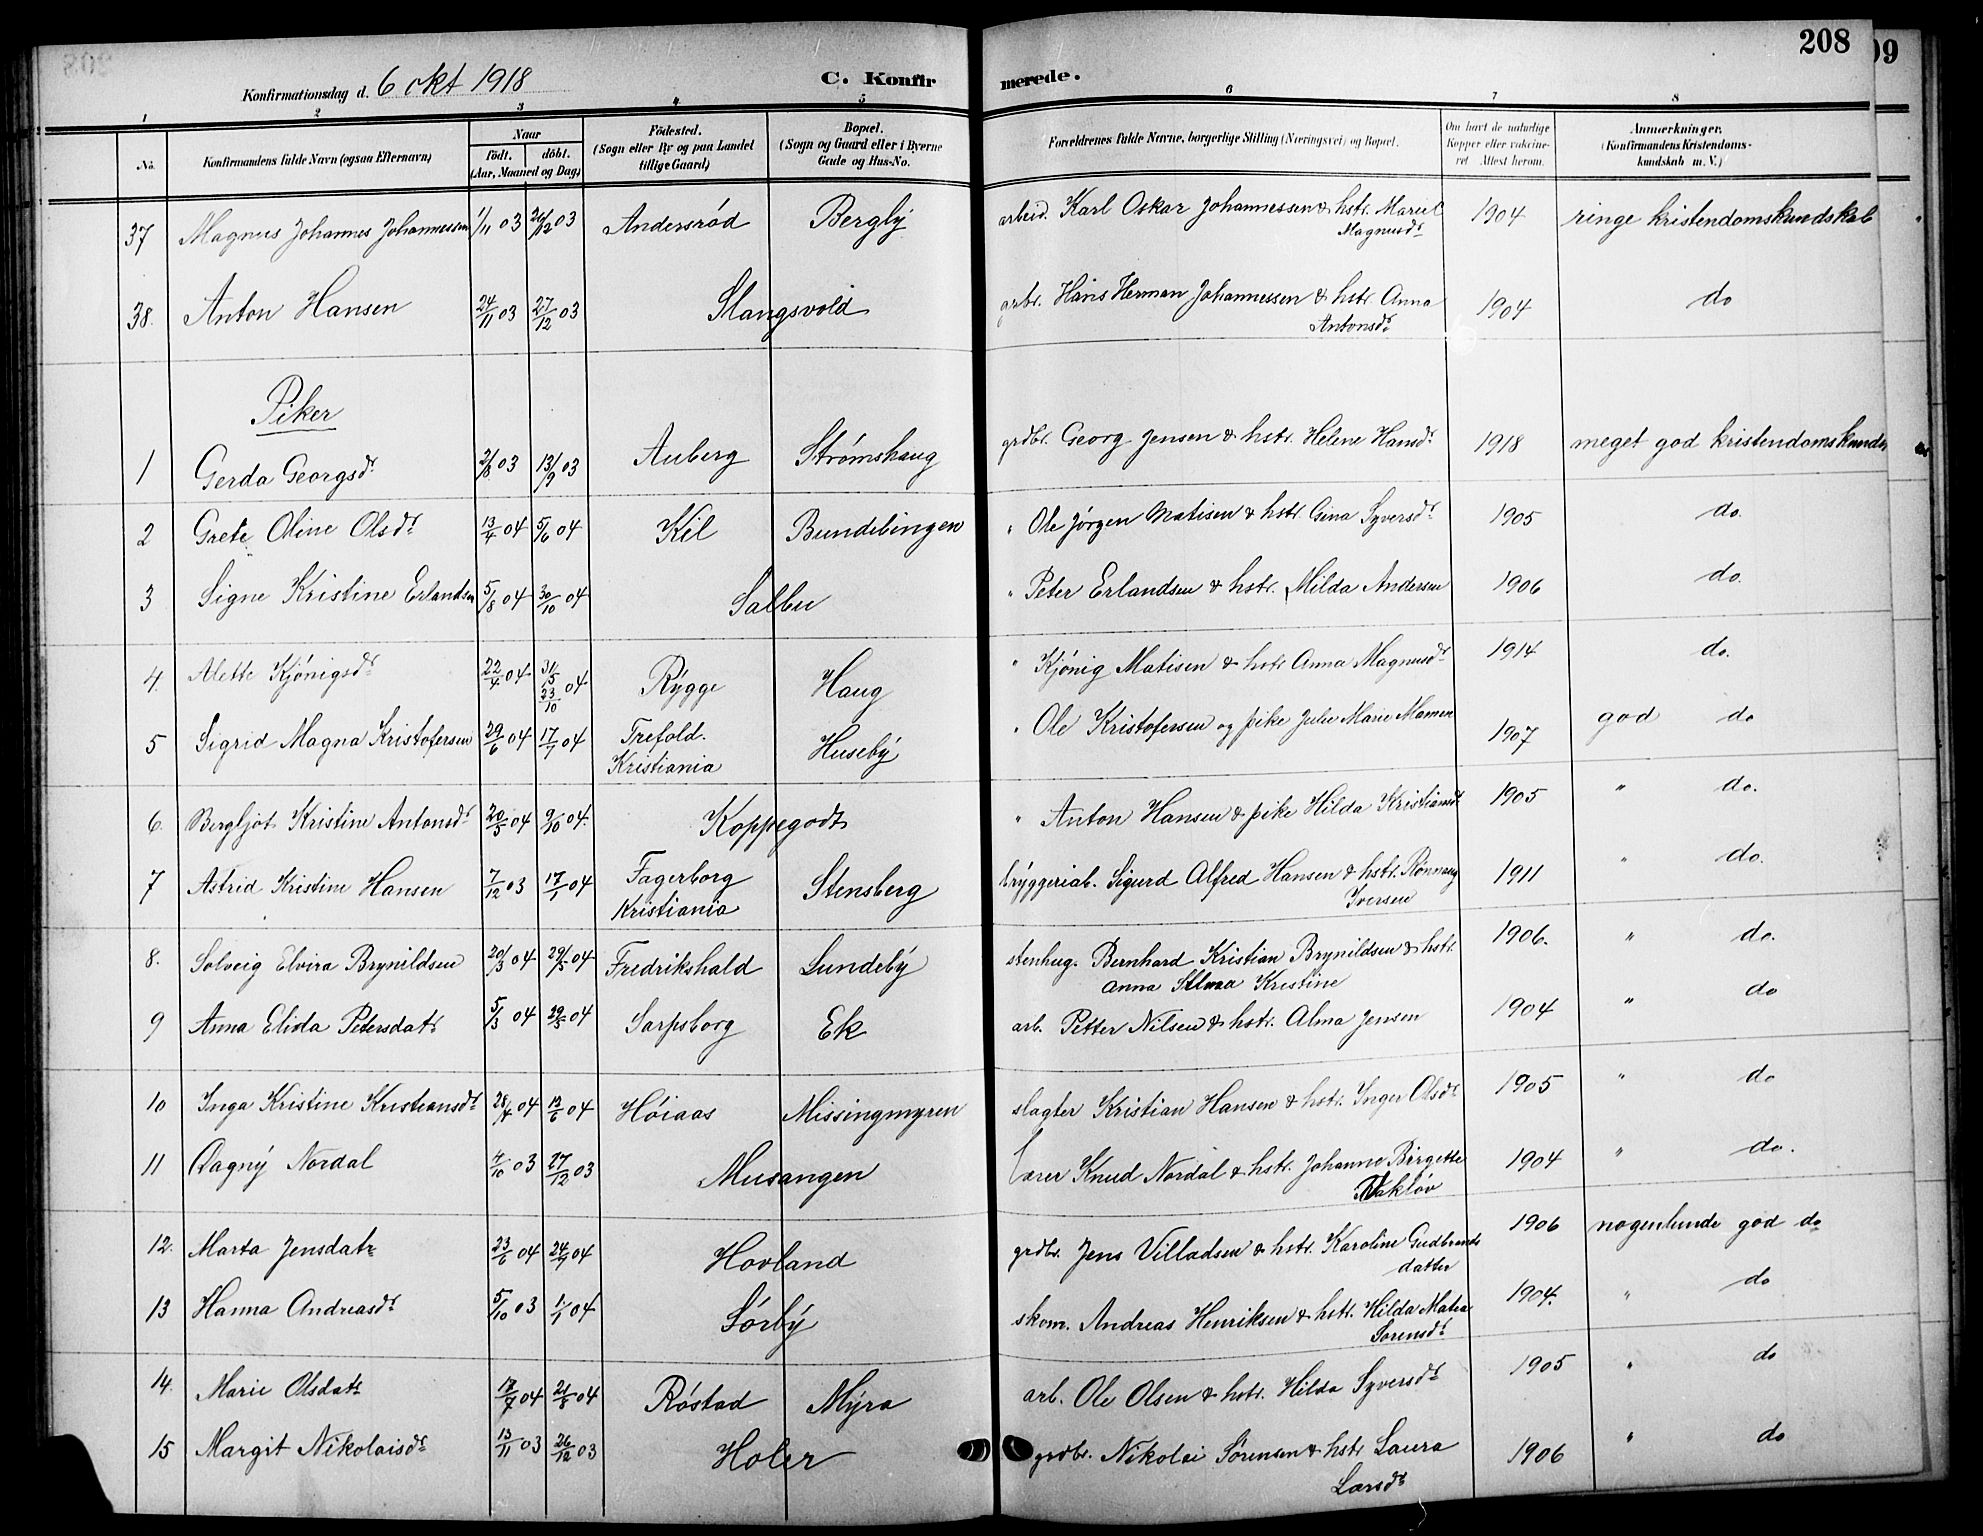 208
Konfirmationsdag d. 6 okt 1918
C. Konfirmerede.
1 2 3 4 5 6 7 8
No.
Konfirmandens fulde Navn (ogsaa Efternavn)
Naar
födt. döbt.
(Aar, Maaned og Dag)
Födested.
(Sogn eller By og paa Landet
tillige Gaard)
Bopæl.
(Sogn og Gaard eller i Byerne
Gade og Hus-No.
Forældrenes fulde Navne, borgerlige Stilling (Næringsvei) og Bopæl.
Om havt de naturlige
Kopper eller vakcine-
ret Attest herom.
Anmærkninger.
(Konfirmandens Kristendoms-
kundskab m. V.)
37 Magnus Johannes Johannessen 1/11 03 26/12 03 Andersrød Bergly arbeid. Karl Oskar Johannessen & hstr. Mariel 1904 ringe kristendomskundskab
Magnusdr
38. Anton Hansen 24/11 03 27/12 03 Slangsvold grbr. Hans Herman Johannessen & hstr. Anna 1904 do
Antonsdr
Piker
1 Gerda Georgsdr 2/8 03 13/9 03 Auberg Strømshaug grdbr. Georg Jensen & hstr. Helene Hansdr 1918 meget god kristendomskunds
2 Grete Oline Olsdr 13/4 04 5/6 04 Kil Bundibingen " Ole Jørgen Matisen & hstr. Gina Syversdr 1905 do.
3 Signe Kristine Erlandsen 5/8 04 30/10 04 Salbu " Peter Erlandsen & hstr. Milda Andersen 1906 do.
4. Alette Kjønigsdr 22/4 04 31/5 23/10 04 Rygge Haug " Kjønig Matisen & hstr Anna Magnusdr 1914 do.
5 Sigrid Magna Kristofersen 29/6 04 17/7 04 Trefold. Huseby " Ole Kristofersen og pike Julie Marie Mamen 1907 god do
Kristiania
6. Bergljot Kristine Antonsdr 20/5 04 9/10 04. Koppegodt " Anton Hansen & pike Hilda Kristiansdr 1905 " do.
7 Astrid Kristine Hansen 7/12 03 17/1 04 Fagerborg Stensberg bryggeriab. Sigurd Alfred Hansen & hstr. Rønnaug 1911 " do.
Kristiania Iversen
8. Solveig Elvira Brynildsen 20/3 04 29/5 04 Fredrikshald Lundeby stenhug. Bernhard Kristian Brynildsen & hstr. 1906. " do.
Anna Kristine
9 Anna Elida Petersdatr 5/3 04 29/5 04 Sarpsborg Ek arb. Petter Nilsen & hstr. Alma Jensen 1904 " do
10 Inga Kristine Kristiansdr 28/4 04 12/6 04 Høiaas Missingmyren slagter Kristian Hansen & hstr. Inger Olsdr 1905 " do
11 Dagny Nordal 4/10 03 27/12 03 Musangen lærer Knud Nordal & hstr. Johanne Birgette 1904 " do.
12. Marta Jensdatr 23/6 04 24/9 04 Hovland grdbr. Jens Villadsen & hstr. Karoline Gudbrands 1906 nogenlunde god do
datter
13 Hanna Andreasdr 5/10 03 1/1 04 Sørby skom. Andreas Henriksen & hstr. Hilda Matea 1904. " do
Sorensdr
14. Marie Olsdatr 17/7 04 21/8 04 Røstad Myra arb. Ole Olsen & hstr. Hilda Syversdr 1905 " do
15 Margit Nikolaisdr 13/11 03 26/12 03 Holer grdbr. Nikolai Sørensen & hstr Laura 1906 " do
Larsdr